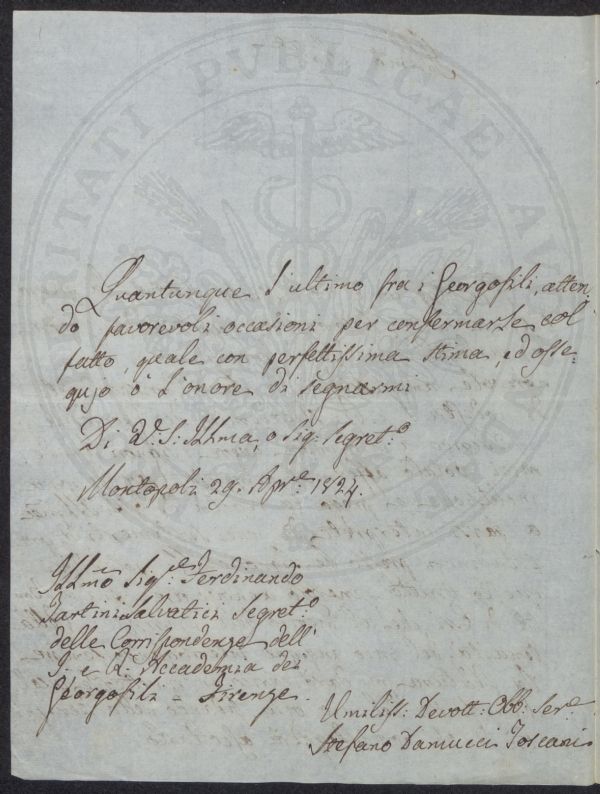 Quantunque l'ultimo fra i Georgofili, atten-
do favorevoli occasioni per confermarle col
fatto, quale con perfettissima stima, ed osse-
qujo ò l'onore di segnarmi
Di V. S: Illma, o Sig: Segret:o
Montopoli 29. Apr.e 1824.
Illmo Sig.e Ferdinando
Tartini Salvatici Segret:o
delle Corrispondenze dell'
I. e R. Accademia dei
Georgofili = Firenze.
Umiliss: Devott: Obb: Ser.e
Stefano Toscani
PUBLICAE